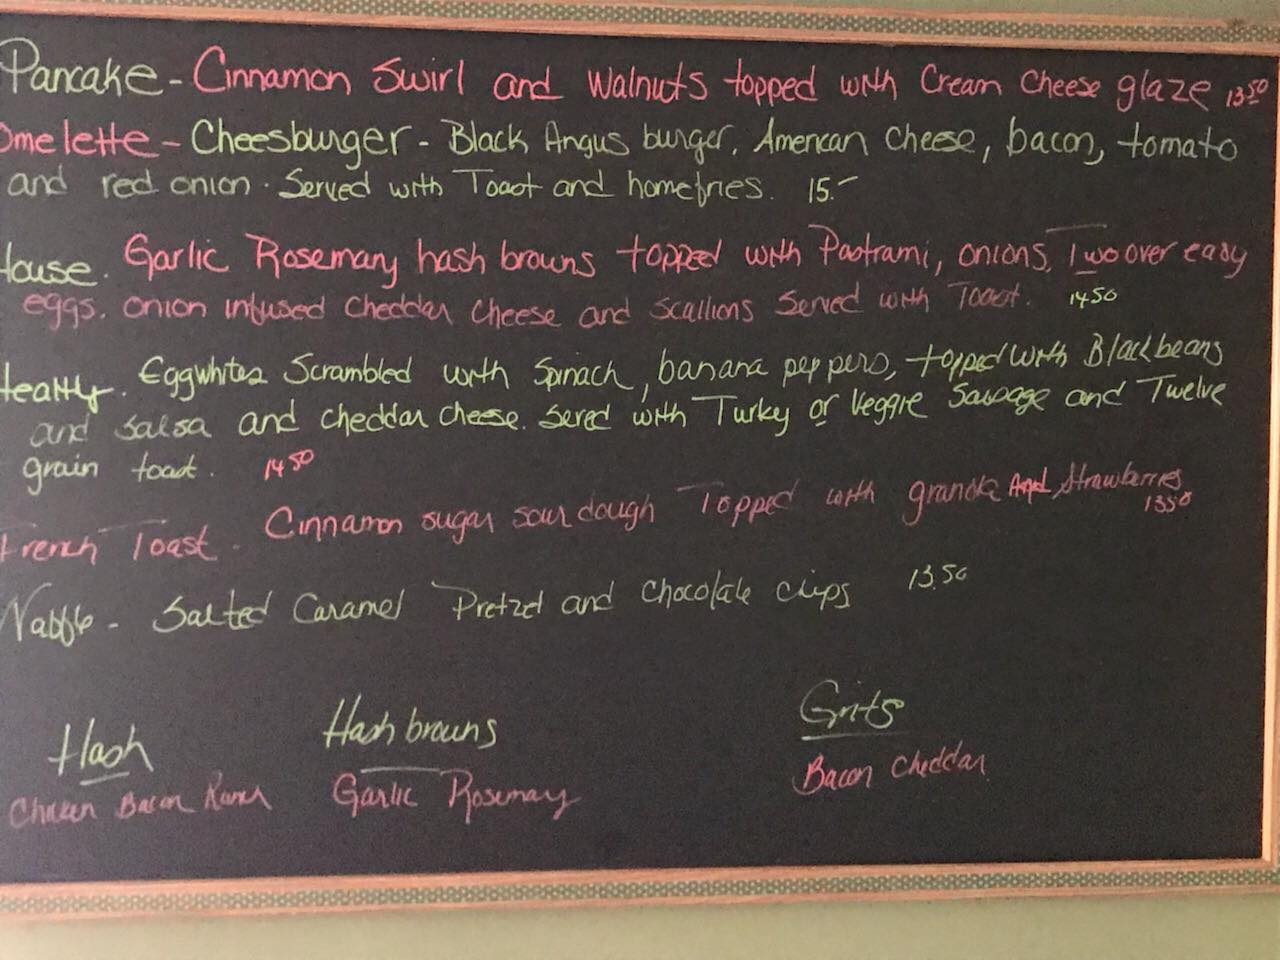 Pancake - Cinnamon Swirl and Walnuts topped with Cream Cheese glaze 13.50
Omelette - Cheesburger - Black Angus burger, American cheese, bacon, tomato
and red onion. Served with Toast and homefries. 15.-
House. Garlic Rosemary hash browns topped with Pastrami, onions, Two over easy
eggs. onion infused cheddar cheese and scallions Served with Toast. 14.50
Healthy. Eggwhites Scrambled with Spinach, banana peppers, topped with Black beans
and salsa and cheddar cheese. Sered with Turkey or Veggie Sausage and Twelve
grain toast. 14.50
French Toast. Cinnamon sugar sourdough Topped with granola And Strawberries 13.50
Waffle - Salted Caramel Pretzel and chocolate chips 13.50
Hash Hash browns Grits
Chicken Bacon Ranch Garlic Rosemary Bacon cheddar